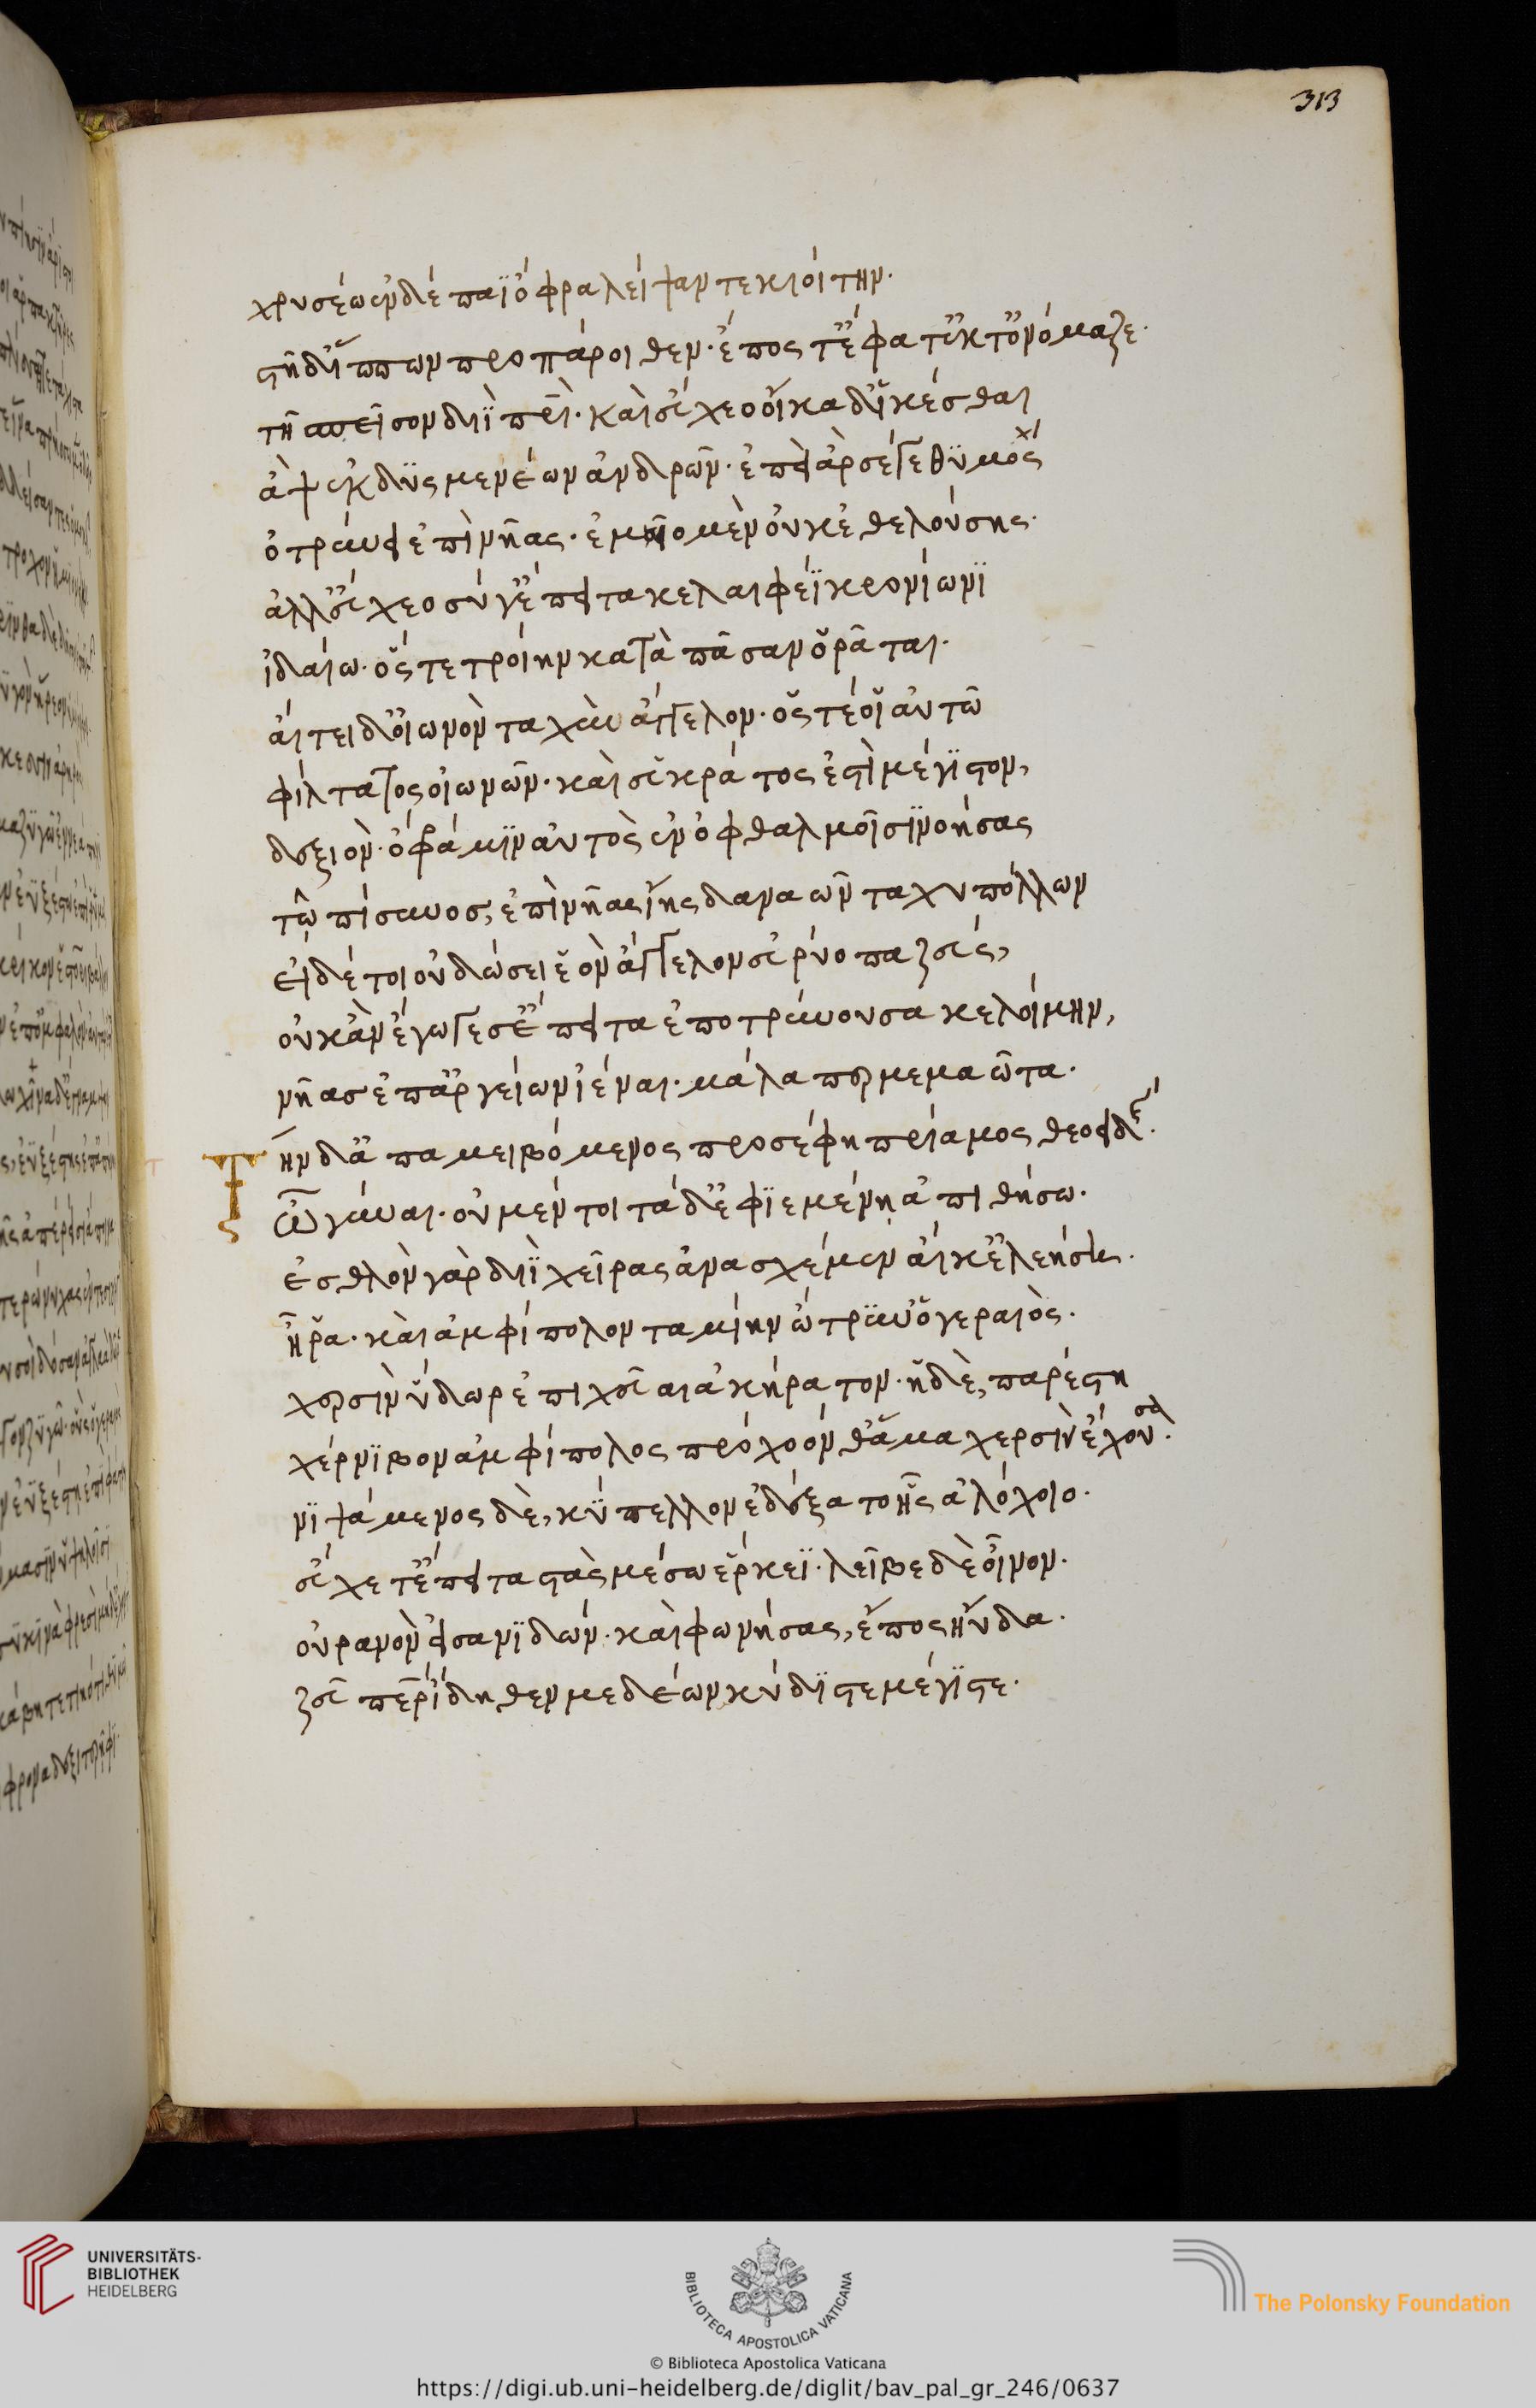 313
χρυσέω ἐν δέπαϊ ὄφρα λείψαντε κιοίτην.
στῆ δ' ἵππων προπάροιθεν. ἔπος τ' ἔφατ' ἔκ τ' ὀνόμαζε.
τῆ σπεῖσον διῒ πρὶ. καὶ εὔχεο οἴκαδ' ἱκέσθαι
ἂψ ἐκ δυσμενέων ἀνδρῶν. ἐπεὶ ἂρ σέγε θυμὸς
ὀτρύνει ἐπὶ νῆας. ἐμεῖο μὲν οὐκ ἐθελούσης.
ἀλλ' εὔχεο σύ γ' ἔπειτα κελαινεφέϊ κρονίωνι
ἰδαίω. ὅς τε τροίην κατὰ πᾶσαν ὁρᾶται.
αἴτει δ' οἰωνὸν ταχὺν ἄγγελον. ὅς τέ οἱ αὐτῶ
φίλτατος οἰωνῶν. καὶ εὑ κράτος ἐστὶ μέγιστον,
δεξιὸν. ὄφρά μιν αὐτὸς ἐν ὀφθαλμοῖσι νοήσας
τῶ πίσυνος, ἐπὶ νῆας ἴης δαναῶν ταχυπώλων
εἰ δέ τοι οὐ δώσει ἑὸν ἄγγελον εὐρύοπα ζεύς,
οὐκ ἂν ἔγωγέ σ' ἔπειτα ἐποτρύνουσα κελοίμην,
νῆας ἐπ' ἀργείων ἰέναι. μάλα περ μεμαῶτα.
Τὴν δ' ἀπαμειβόμενος προσέφη πρίαμος θεοειδὴς.
ὦ γύναι. οὐ μέν τοι τόδ' ἐφιεμένη ἀπιθήσω.
ἐσθλὸν γὰρ διῒ χεῖρας ἀνασχέμεν αἴ κ' ἐλεήσει.
ἦ ῥα. καὶ ἀμφίπολον ταμίην ὤτρυν' ὁ γεραιὸς.
χερσὶν ὕδωρ ἐπιχεῦαι ἀκήρατον. ἡ δὲ, παρέστη
χέρνιβον ἀμφίπολος πρόχοόν θ' ἅμα χερσὶν ἔχουσα.
νιψάμενος δὲ, κύπελλον ἐδέξατο ἧς ἀλόχοιο.
εὔχετ' ἔπειτα στὰς μέσω ἕρκεϊ. λεῖβε δὲ οἶνον.
οὐρανὸν εἰσανιδών. καὶ φωνήσας, ἔπος ηὔδα.
ζεῦ πὲρ ἴδηθεν μεδέων κύδιστε μέγιστε.
UNIVERSITÄTS-
BIBLIOTHEK
HEIDELBERG
BIBLIOTECA APOSTOLICA VATICANA
The Polonsky Foundation
© Biblioteca Apostolica Vaticana
https://digi.ub.uni-heidelberg.de/diglit/bav_pal_gr_246/0637